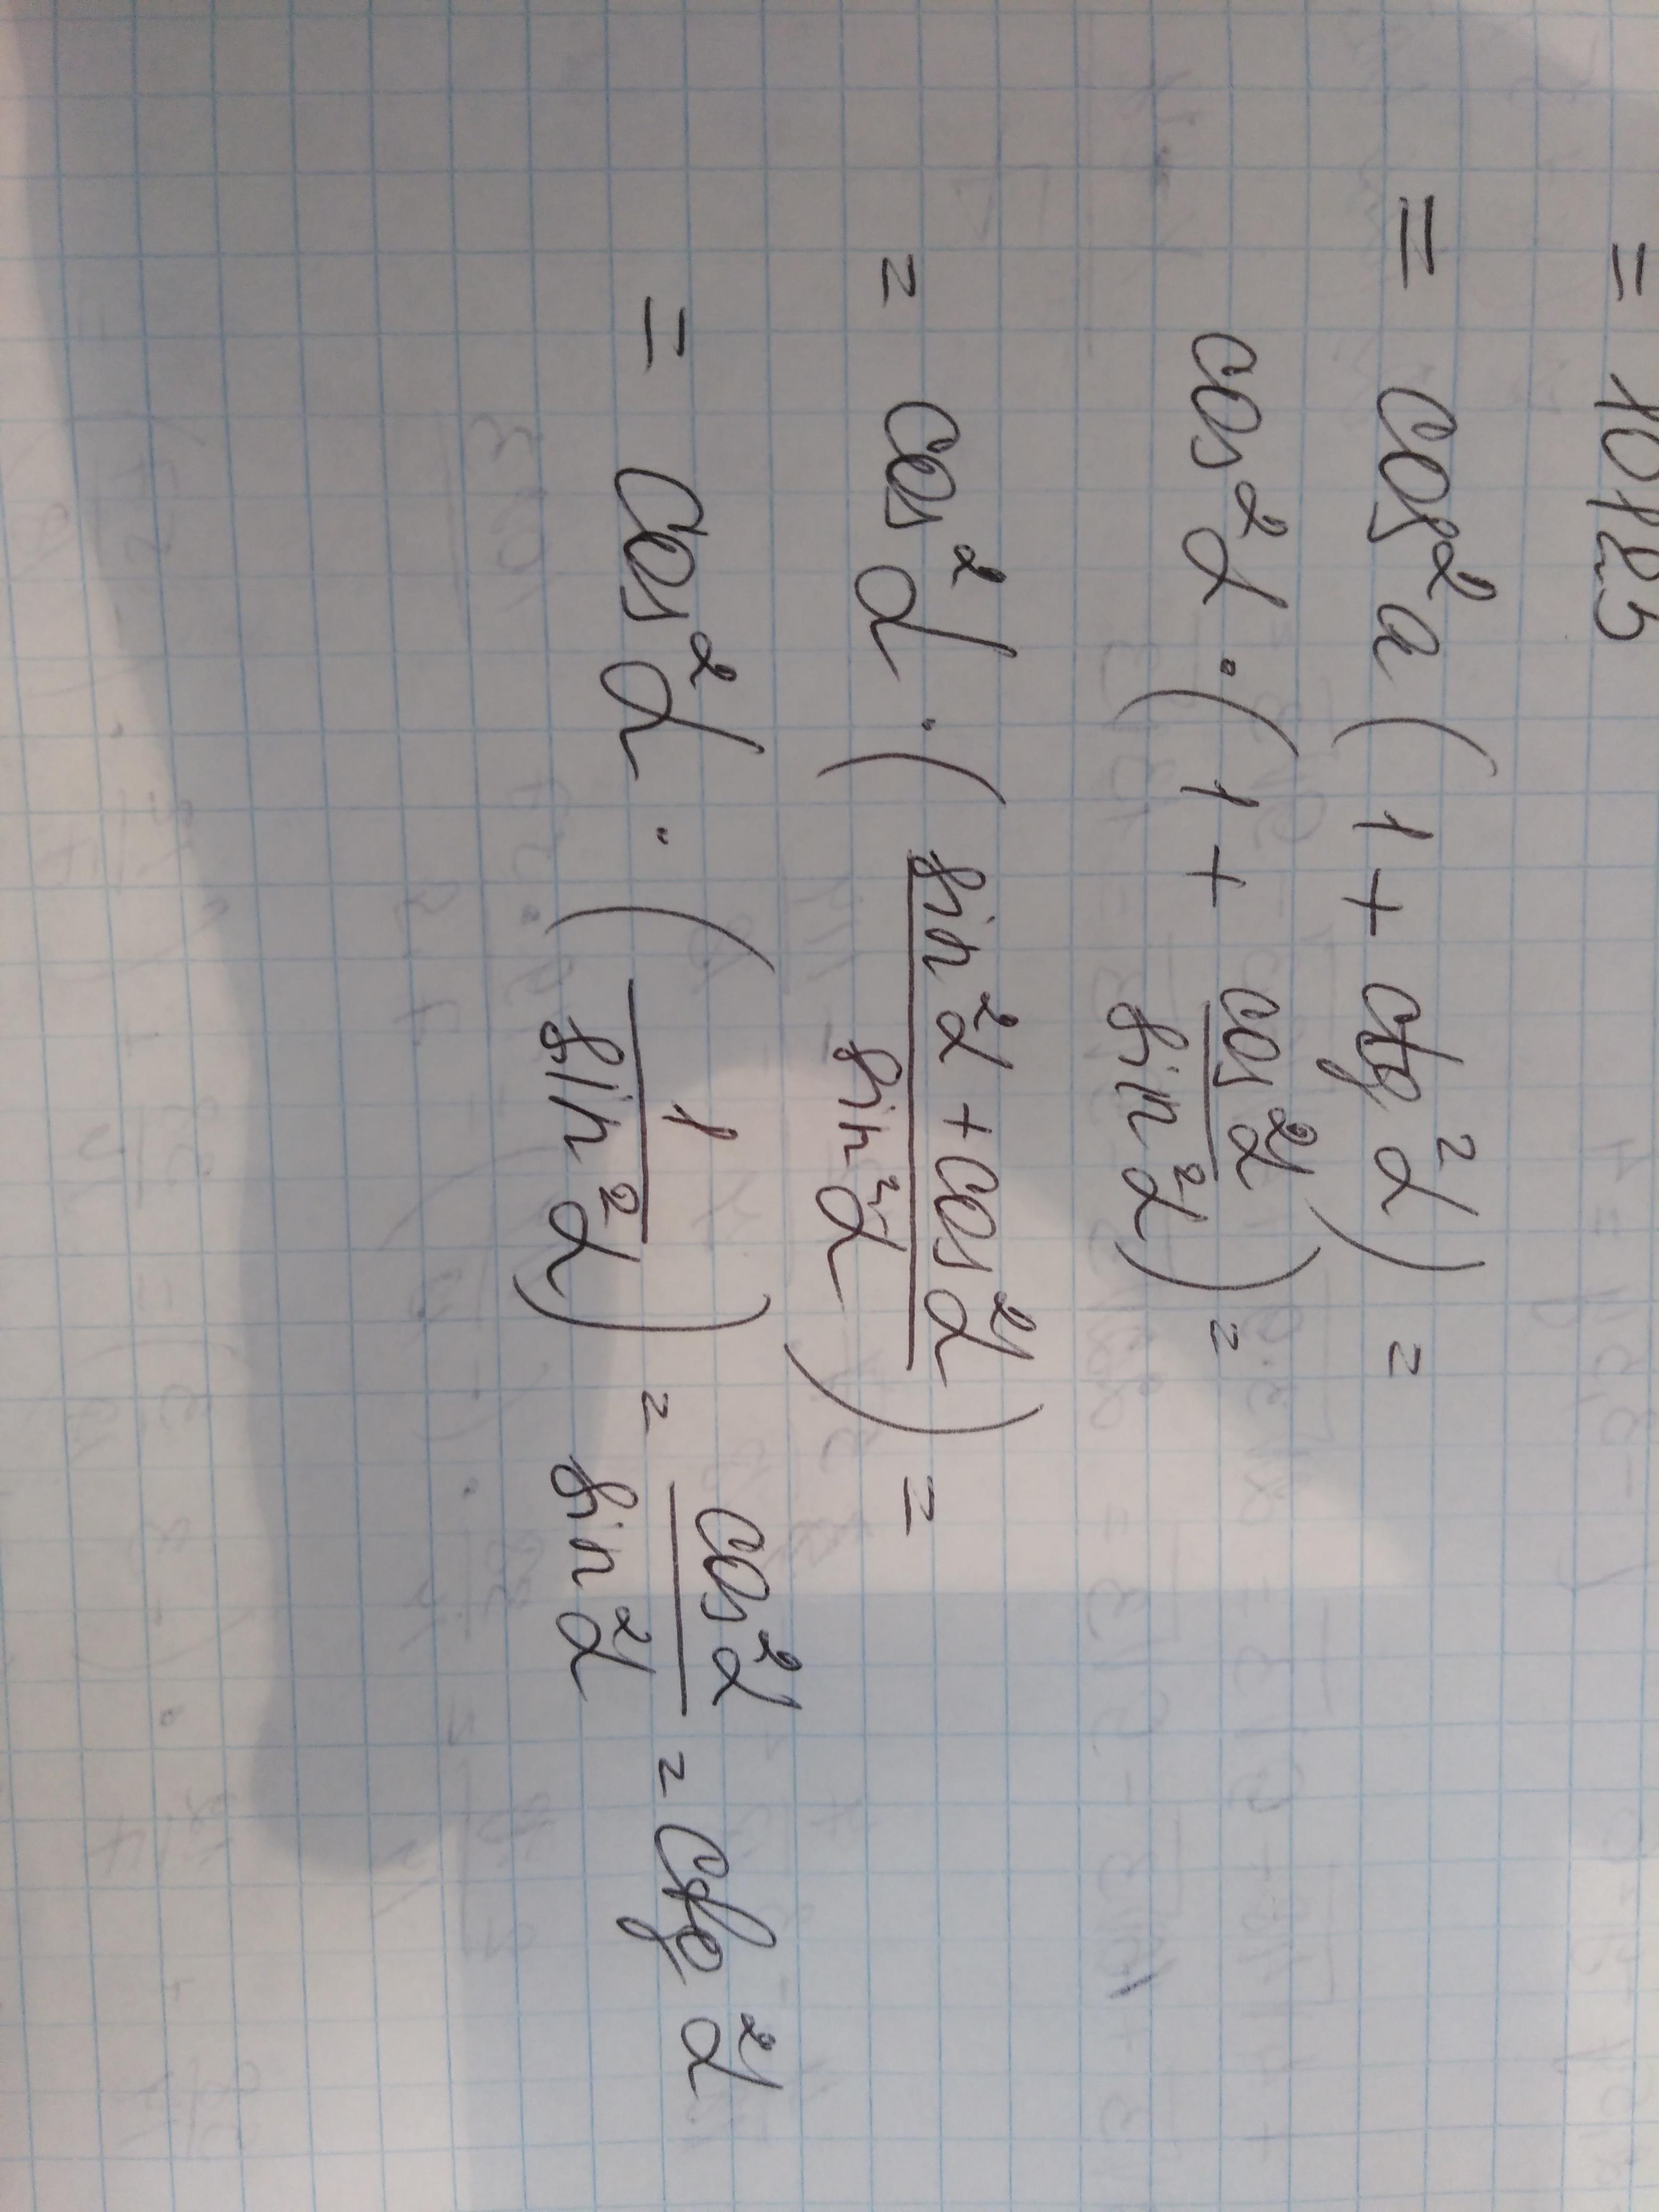 = cos²a (1 + ctg²α) =
cos²α · (1 + cos²α / sin²α) =
= cos²α · (sin²α + cos²α / sin²α) =
= cos²α · (1 / sin²α) = cos²α / sin²α = ctg²α